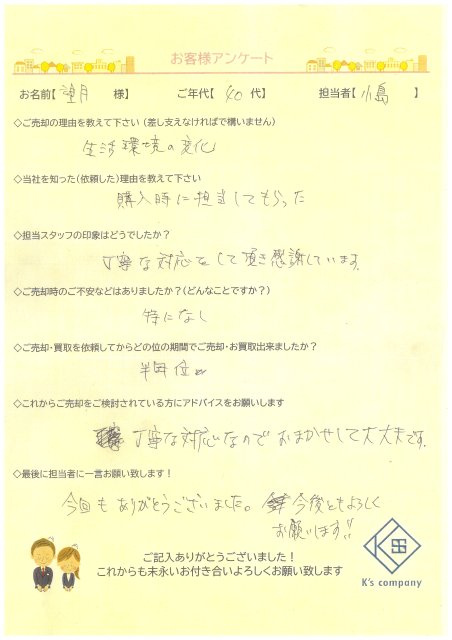 お客様アンケート
お名前【 望月 様】 ご年代【 40 代】 担当者【 小島 】
◇ご売却の理由を教えて下さい（差し支えなければで構いません）
生活環境の変化
◇当社を知った（依頼した）理由を教えて下さい
購入時に担当してもらった
◇担当スタッフの印象はどうでしたか？
丁寧な対応をして頂き感謝しています。
◇ご売却時のご不安などはありましたか？（どんなことですか？）
特になし
◇ご売却・買取を依頼してからどの位の期間でご売却・お買取出来ましたか？
半年位
◇これからご売却をご検討されている方にアドバイスをお願いします
丁寧な対応なのでおまかせして大丈夫です。
◇最後に担当者に一言お願い致します！
今回もありがとうございました。今後ともよろしく
お願いします!!
ご記入ありがとうございました！
これからも末永いお付き合いよろしくお願い致します
K's company